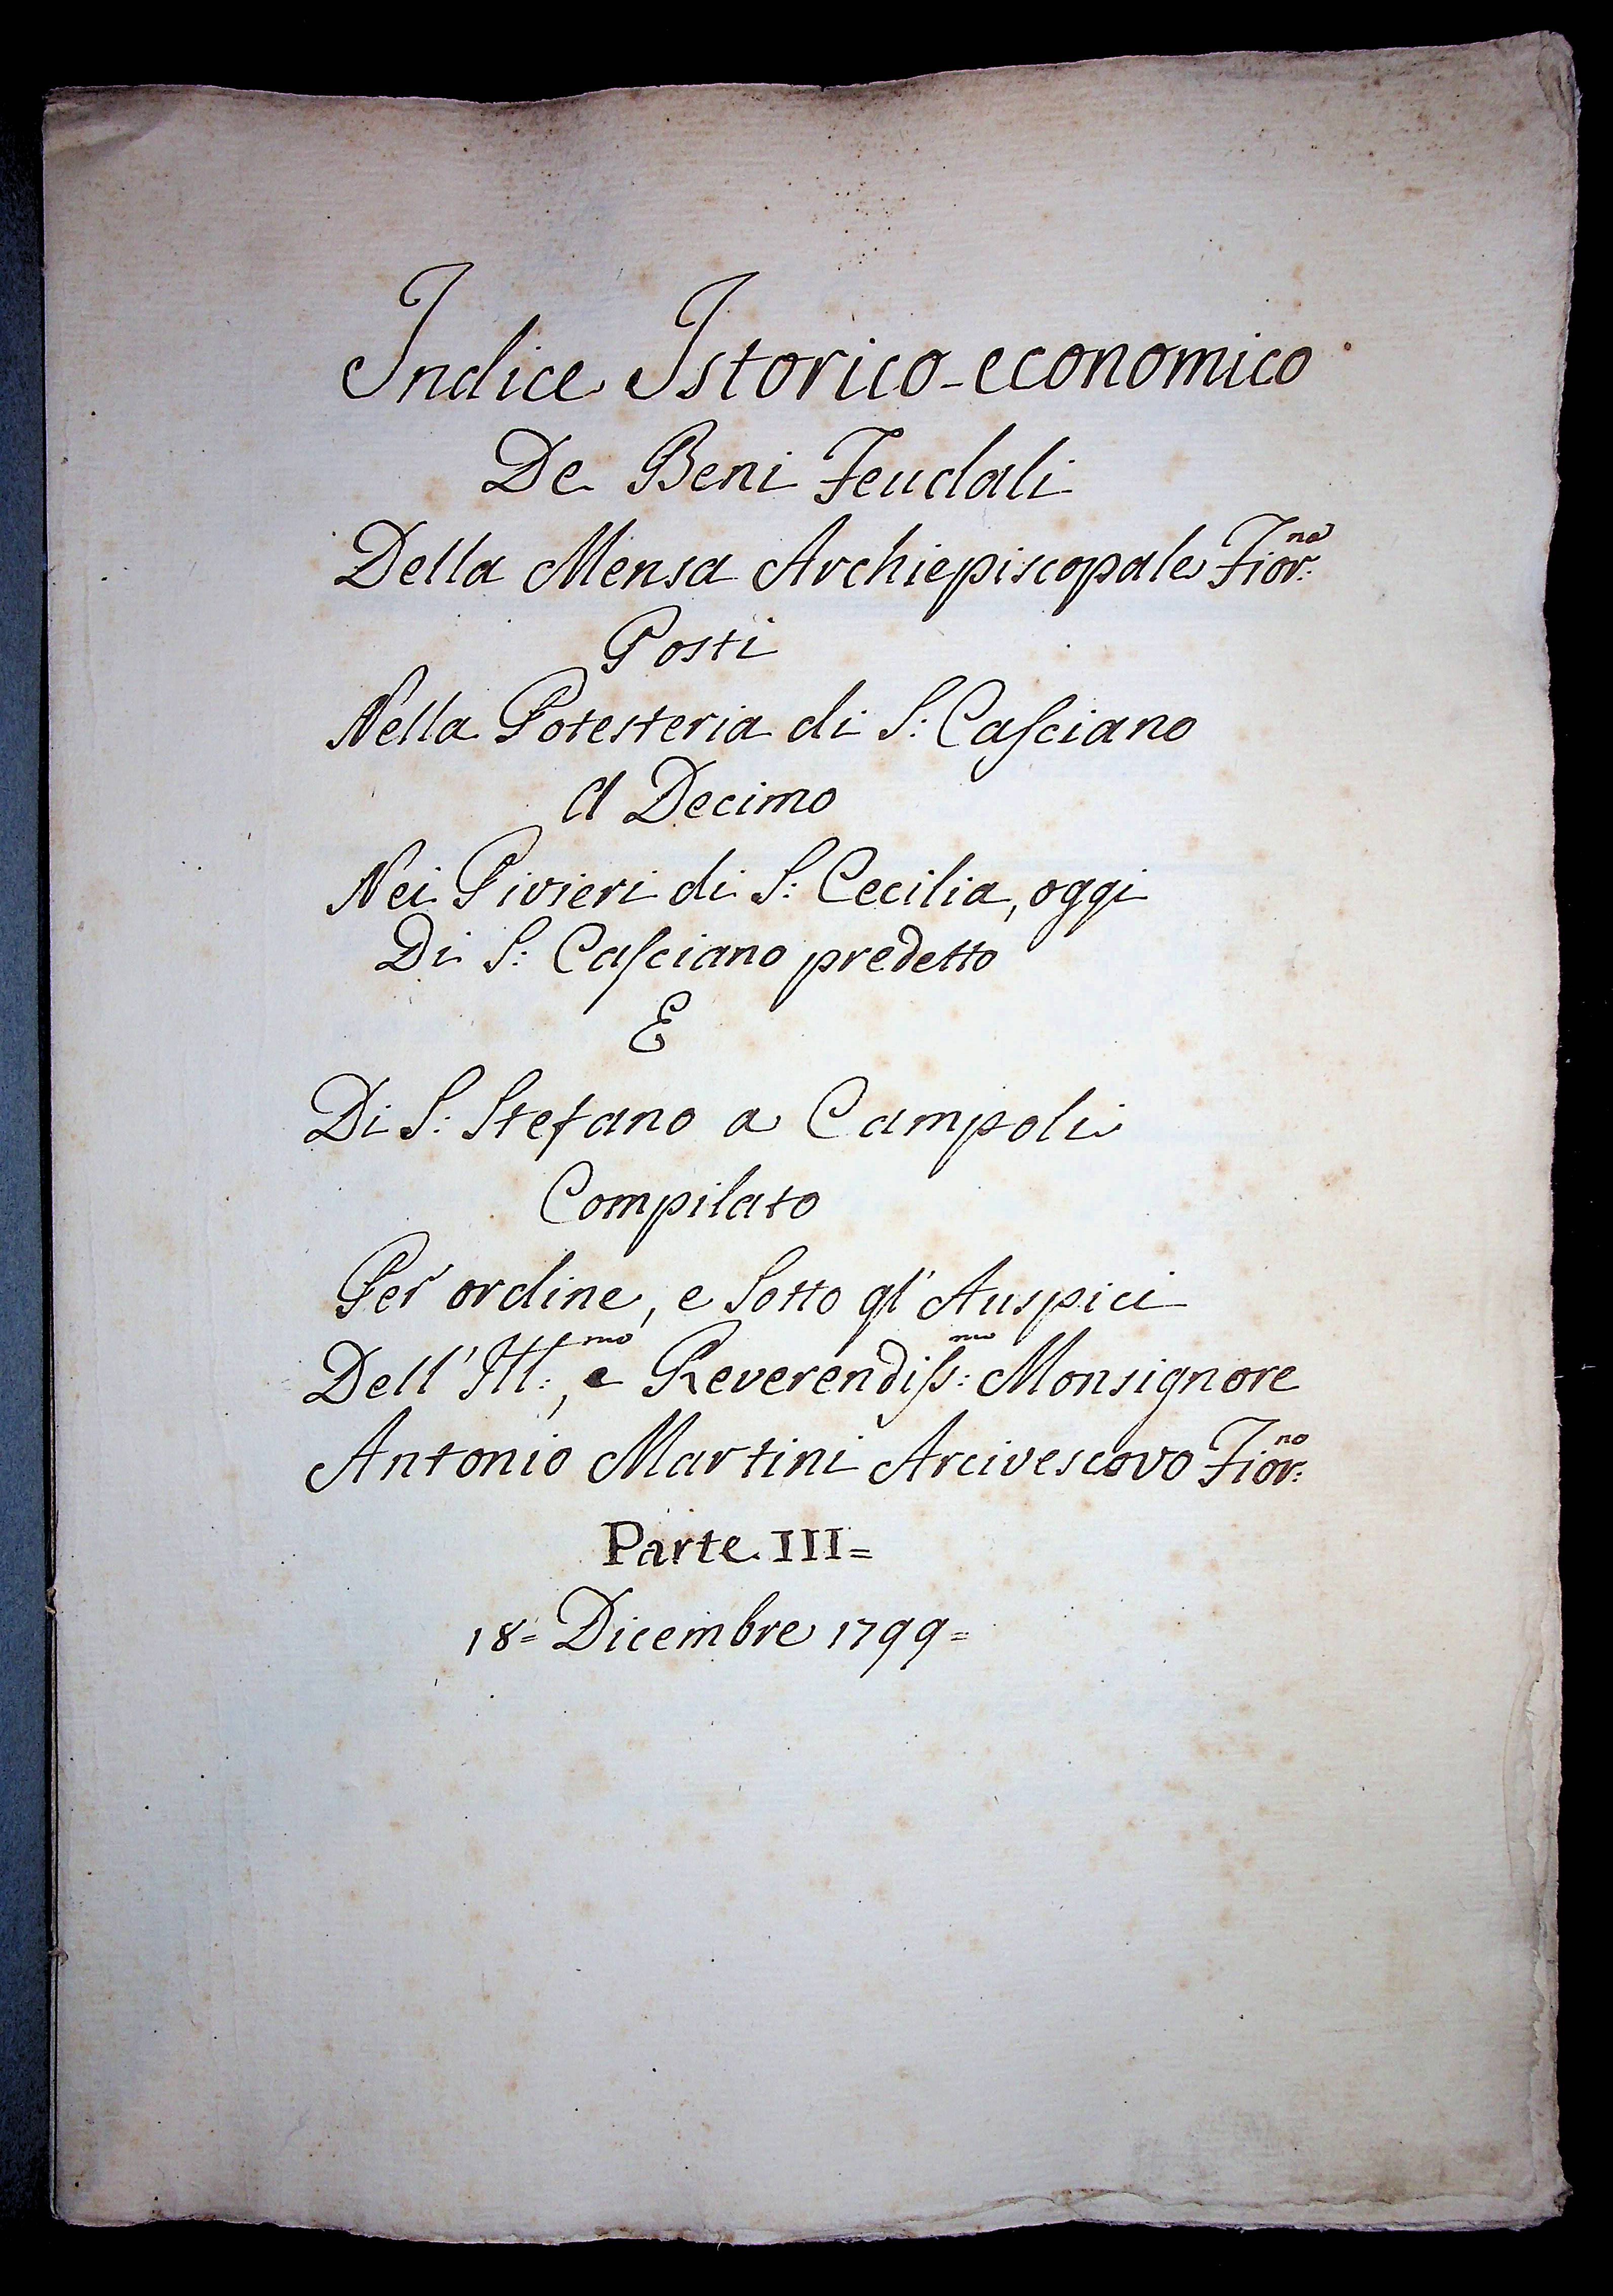 Indice Istorico-economico
De Beni Feudali
Della Mensa Archiepiscopale Fior:na
Posti
Nella Potesteria di S: Casciano
A Decimo
Nei Pivieri di S: Cecilia, oggi
Di S: Casciano predetto
E
Di S: Stefano a Campoli
Compilato
Per ordine, e Sotto gl' Auspici
Dell' Ill:mo, e Reverendiss:mo Monsignore
Antonio Martini Arcivescovo Fior:no
Parte. III=
18= Dicembre 1799=